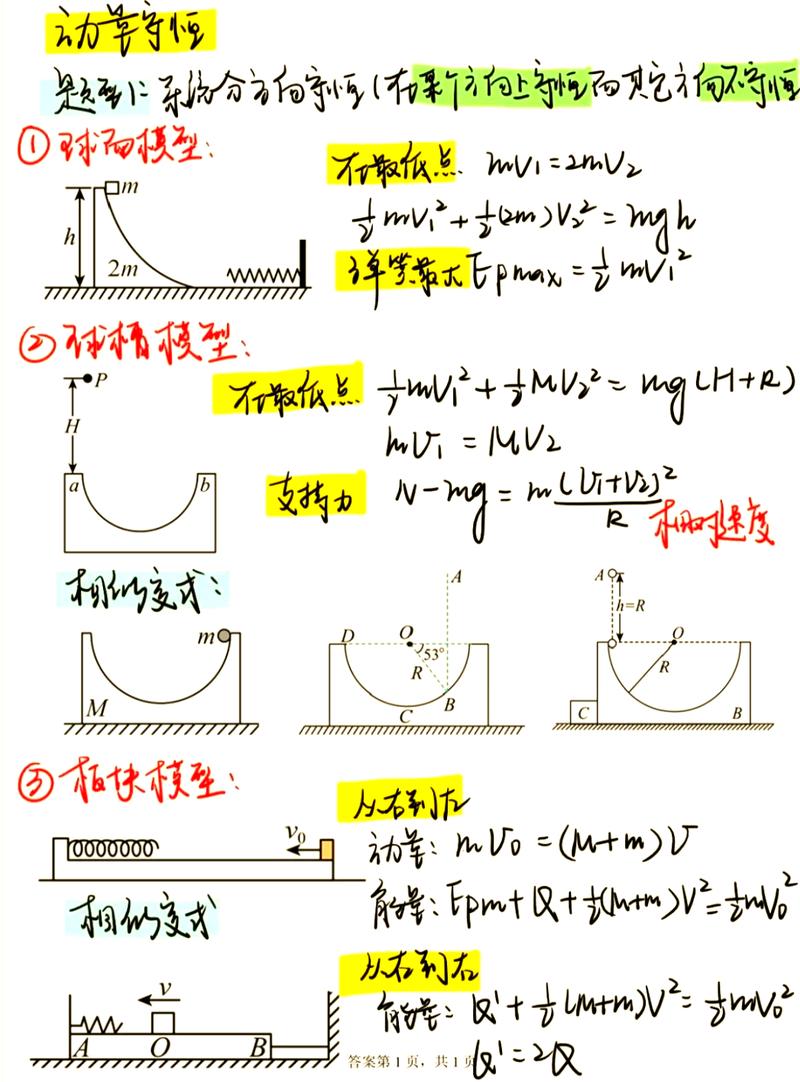 动量守恒
题型1: 系统分方向守恒(在某个方向上守恒而其它方向不守恒
① 球面模型:
m
h
2m
在最低点 mV₁=2mV₂
½mV₁²+½(2m)V₂²=mgh
弹簧最大 Epmax=½mV₁²
② 球槽模型:
P
H
a b
在最低点 ½mV₁²+½MV₂²=mg(H+R)
mV₁=MV₂
支持力 N-mg=m(V₁+V₂)²/R
相对速度
相似变式:
m
M
A
D O
53°
R
B
C
A
h=R
O
R
C B
③ 板块模型:
v₀
从右到左
动量: mV₀=(M+m)V
能量: Epm+Q+½(M+m)V²=½mV₀²
相似变式
v
A O B
从左到右
能量: Q'+½(M+m)V²=½mV₀²
Q'=2Q
答案第1页，共1页